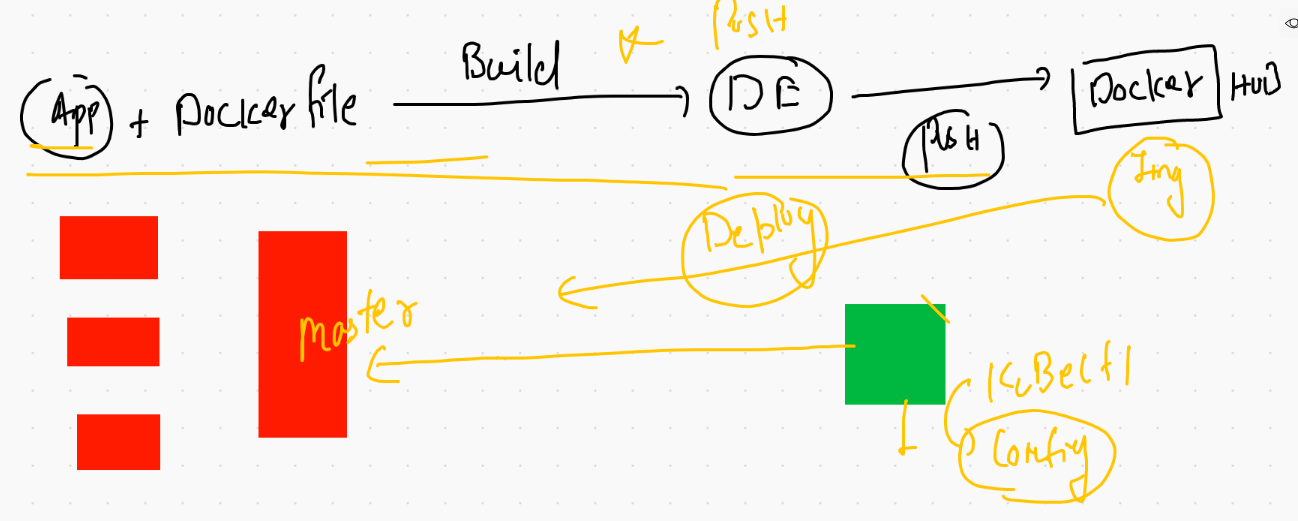 Push
Build
App + Dockerfile
DE
Docker Hub
Push
Img
Deploy
Master
KuBectl
Config